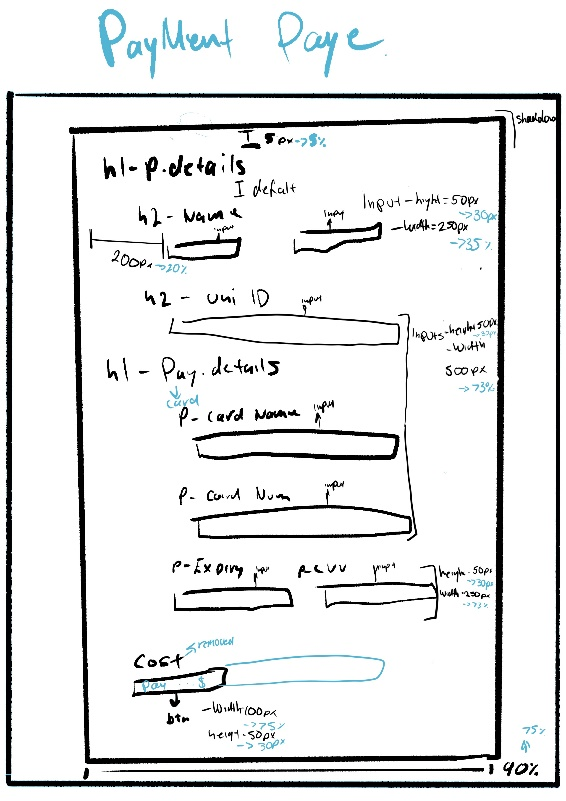 PayMent Page
5px →5%
h1-P.details
I defalt
Input-hight=50px
→30px
h2-Name
input
input
-Width=250px
→35%
200px →20%
h2 - Uni ID
input
Inputs-height50px
-Width
500px
→73%
h1 - Pay.details
card
P- Card Name
input
P- Card Num
input
P-Expiry
input
P.CVV
input
height-50px
→30px
Width-250px
→73%
Cost
removed
Pay $
btn
-Width100px
→75%
height-50px
→30px
75%
90%